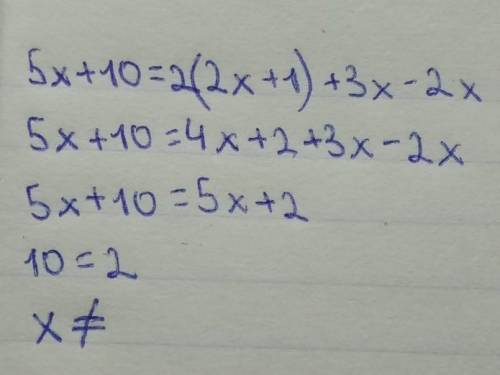 5x+10=2(2x+1)+3x-2x
5x+10=4x+2+3x-2x
5x+10=5x+2
10=2
x≠